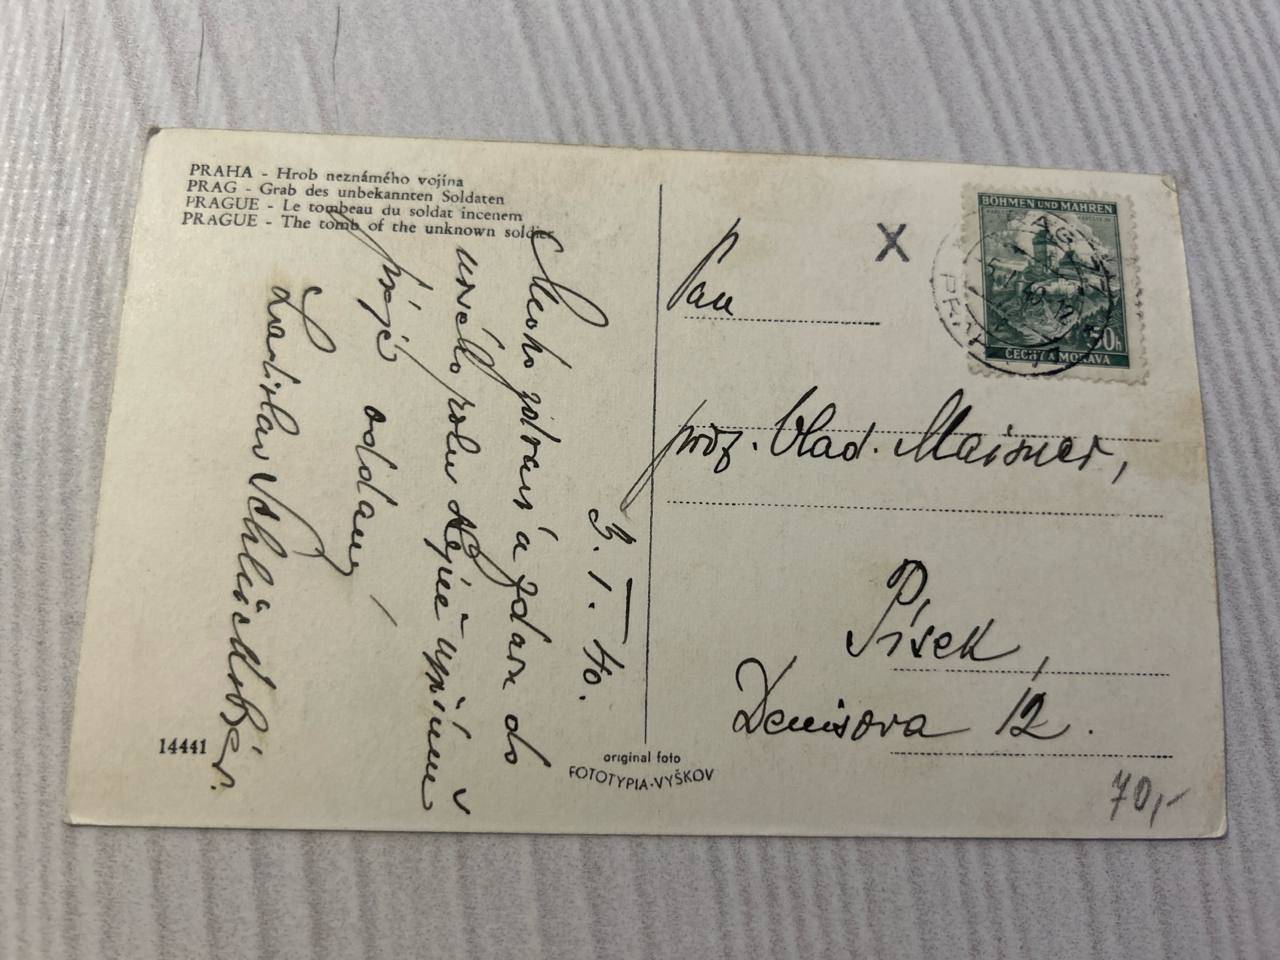 PRAHA - Hrob neznámého vojína
PRAG - Grab des unbekannten Soldaten
PRAGUE - Le tombeau du soldat incenem
PRAGUE - The tomb of the unknown soldier
3. I. 40.
Mnoho zdraví a zdaru do
nového roku Vám upřímně
přeje oddaný
Ladislav
14441
original foto
FOTOTYPIA-VYŠKOV
X
BÖHMEN UND MÄHREN
50h
ČECHY A MORAVA
Pan
prof. Vlad. Maisner,
Písek,
Denisova 12.
70,-